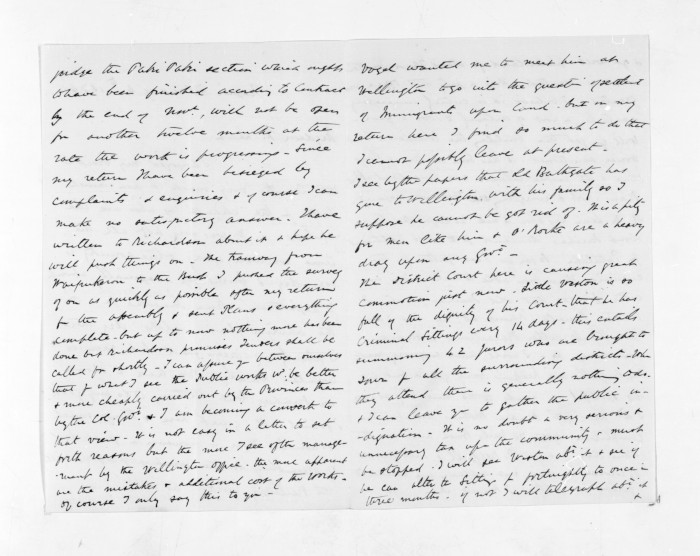 judge the Paki Paki section which ought
to have been finished according to Contract
by the end of Novr, will not be open
for another twelve months at the
rate the work is progressing - Since
my return I have been besieged by
complaints & enquiries & of course I can
make no satisfactory answer - I have
written to Richardson about it & hope he
will push things on - The Tramway from
Waipukurau to the Bush I pushed the survey
of on as quickly as possible after my return
fr the assembly & send Plans & everything
complete - but up to now nothing more has been
done but Richardson promises Tenders shall be
called for shortly - I can assure you between ourselves
that fr what I see the Public works wd. be better
& more cheaply carried out by the Provinces than
by the Col. Govt & I am becoming a convert to
that view - It is not easy in a letter to set
forth reasons but the more I see of the manage-
-ment by the Wellington office - the more apparent
are the mistakes & additional cost of the works -
of course I only say this to you -
Vogel wanted me to meet him at
Wellington to go into the questn of settlemt
of Immigrants upon land - but on my
return here I find so much to do that
I cannot possibly leave at present -
I see by the papers that Ld Bathgate has
gone to Wellington with his family so I
suppose he cannot be got rid of. It is a pity
for men like him & O'Rorke are a heavy
drag upon any Govt -
The District Court here is causing great
commotion just now - Little Weston is so
full of the dignity of his Court - that he has
Criminal Sittings every 14 days - this entails
summoning 42 jurors who are brought to
town fr all the surrounding districts - When
they attend there is generally nothing to do.
& I can leave you to gather the public in-
-dignation - It is no doubt a very serious &
unnecessary tax up the community & must
be stopped. I will see Weston abt. it & see if
he can alter the Sittings fr fortnightly to once in
three months - if not I will telegraph abt. it
&